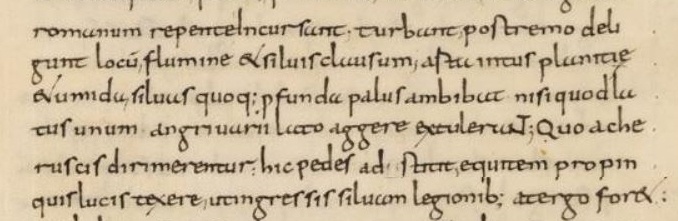 romanum repente Incursant. turbant, postremo deli
gunt locū, flumine & siluis clausum, arta intus planitie
& umida, siluas quoq; pfunda palus ambibat nisi quod la
tus unum angriuarii lato aggere extulerant; Quo a che
ruscis dirimerentur; hic pedes ad stitit, equitem propin
quis lucis texere, ut ingressis siluam legionib; a tergo for&: